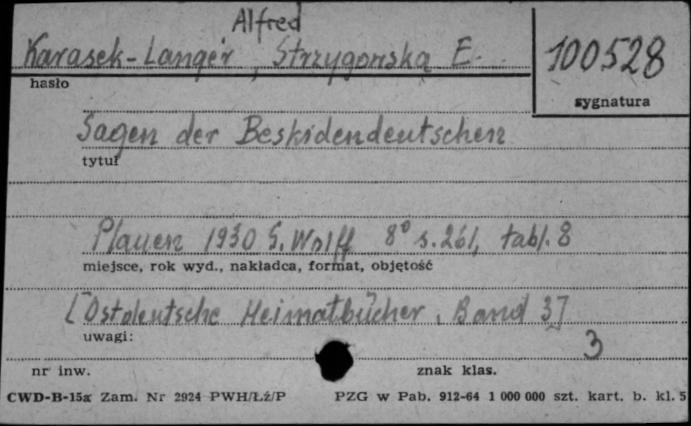 Alfred
Karasek-Langer, Strzygowska E.
100528
hasło
sygnatura
Sagen der Beskidendeutschen
tytuł
Plauen 1930 G. Wolff 8° s. 261, tabl. 8
miejsce, rok wyd., nakładca, format, objętość
[Ostdeutsche Heimatbücher, Band 3]
uwagi:
3
nr inw. znak klas.
CWD-B-15a Zam. Nr 2924 PWH/Łż/P PZG w Pab. 912-64 1 000 000 szt. kart. b. kl. 5